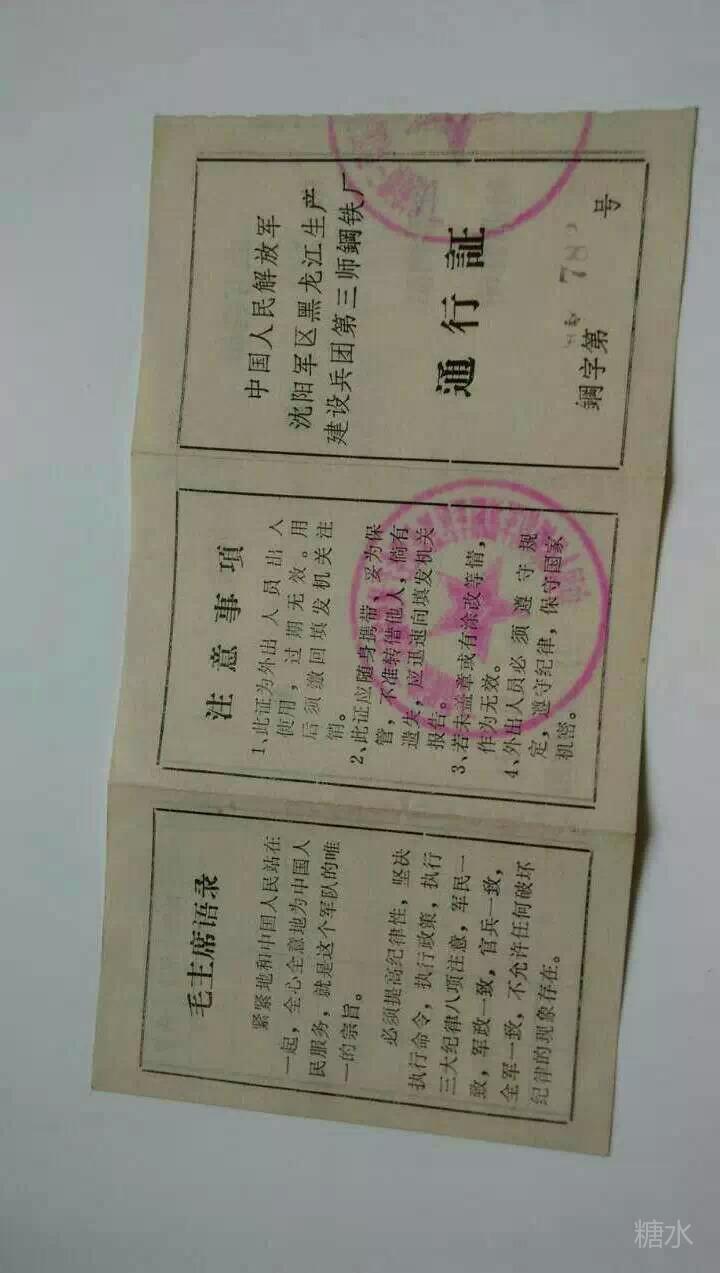 毛主席语录
紧紧地和中国人民站在
一起，全心全意地为中国人
民服务，就是这个军队的唯
一的宗旨。
必须提高纪律性，坚决
执行命令，执行政策，执行
三大纪律八项注意，军民一
致，军政一致，官兵一致，
全军一致，不允许任何破坏
纪律的现象存在。
注意事項
1、此证为外出人员出入
使用，过期无效。用
后须缴回填发机关注
销。
2、此证应随身携带、妥为保
管，不准转借他人，倘有
遗失，应迅速向填发机关
报告。
3、若未盖章或有涂改等情，
作为无效。
4、外出人员必须遵守规
定，遵守纪律，保守国家
机密。
中国人民解放军
沈阳军区黑龙江生产
建设兵团第三师鋼铁厂
通行証
鋼字第 78 号
糖水